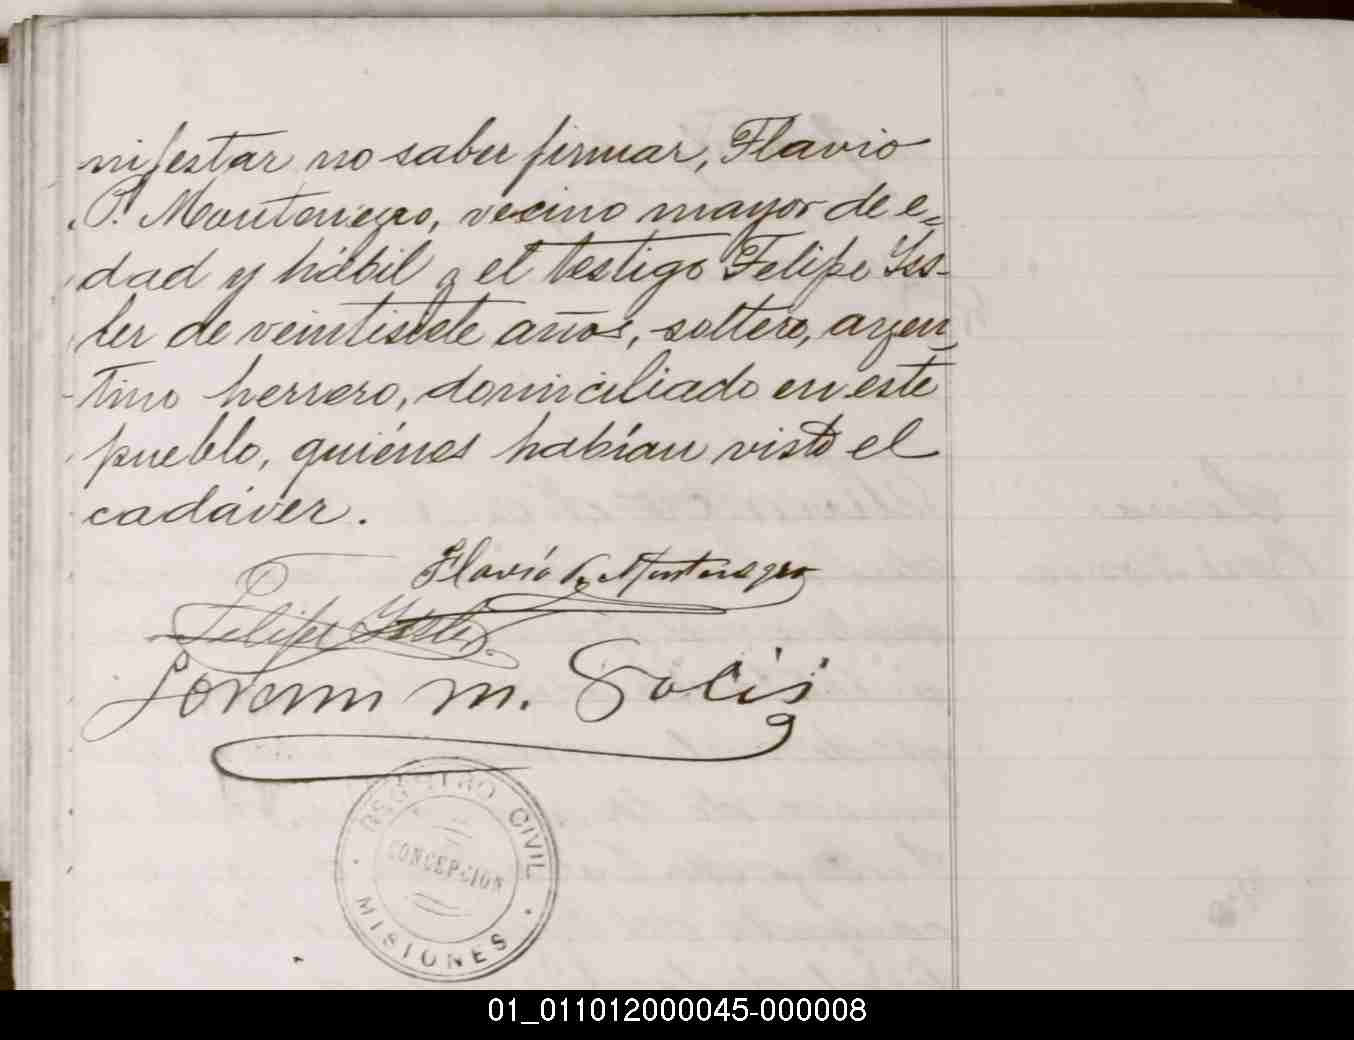 nifestar no saber firmar, Flavio
P. Montenegro, vecino mayor de e-
dad y hábil y el testigo Felipe Iss-
ler de veintisiete años, soltero, argen-
tino herrero, domiciliado en este
pueblo, quiénes habían visto el
cadáver.
Flavio P. Montenegro
Felipe Issler
M. Solis
REGISTRO CIVIL
CONCEPCION
MISIONES
01_011012000045-000008